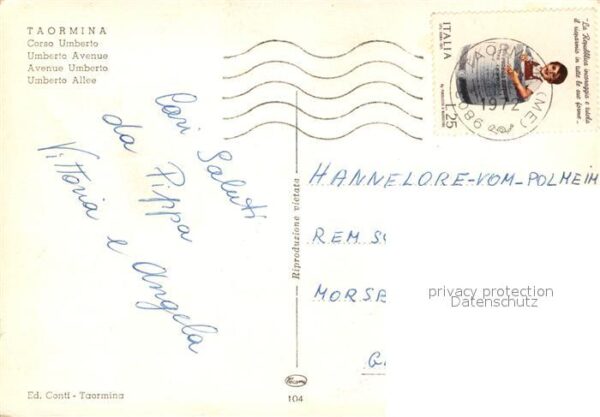 TAORMINA
Corso Umberto
Umberto Avenue
Avenue Umberto
Umberto Allee
Cari Saluti
da Pippa
Vittoria e Angela
Ed. Conti - Taormina
Riproduzione vietata
104
ITALIA
L.25
"La Repubblica incoraggia e tutela
il risparmio in tutte le sue forme...
TAORMINA (ME)
1972
98039
HANNELORE-VOM-POLHEIM
REM SC
MORSB
G
privacy protection
Datenschutz